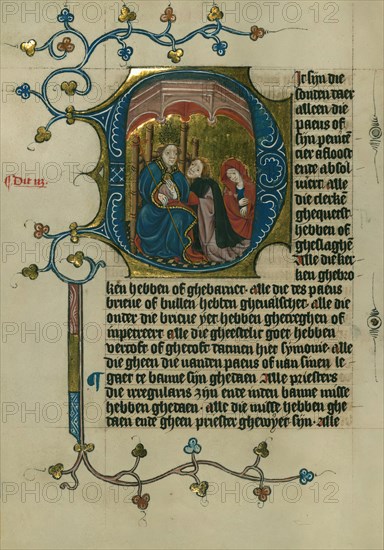 Dit sijn die
sonden daer
alleen die
paeus of
sijn peniten
cier af loost
ende absol
uiert alle
die clerke
ghequetst
hebben of
gheslaghe
Alle die ker
ken ghebro
ken hebben of ghebarnet · alle die des paeus
brieue of bullen hebben gheualschet · alle die
onder die brieue yet hebben ghecreghen of
alle die gheestelic goet hebben
vercoft of ghecoft dannen hiet symonie · alle
die gheen die uanden paeus of uan sinen le
gaet te banne sijn ghedaen · Alle priesters
die irregularis zijn ende inden banne misse
hebben ghedaen · alle die misse hebben ghe
daen ende gheen priester ghewyet sijn · Alle
PHOTO12